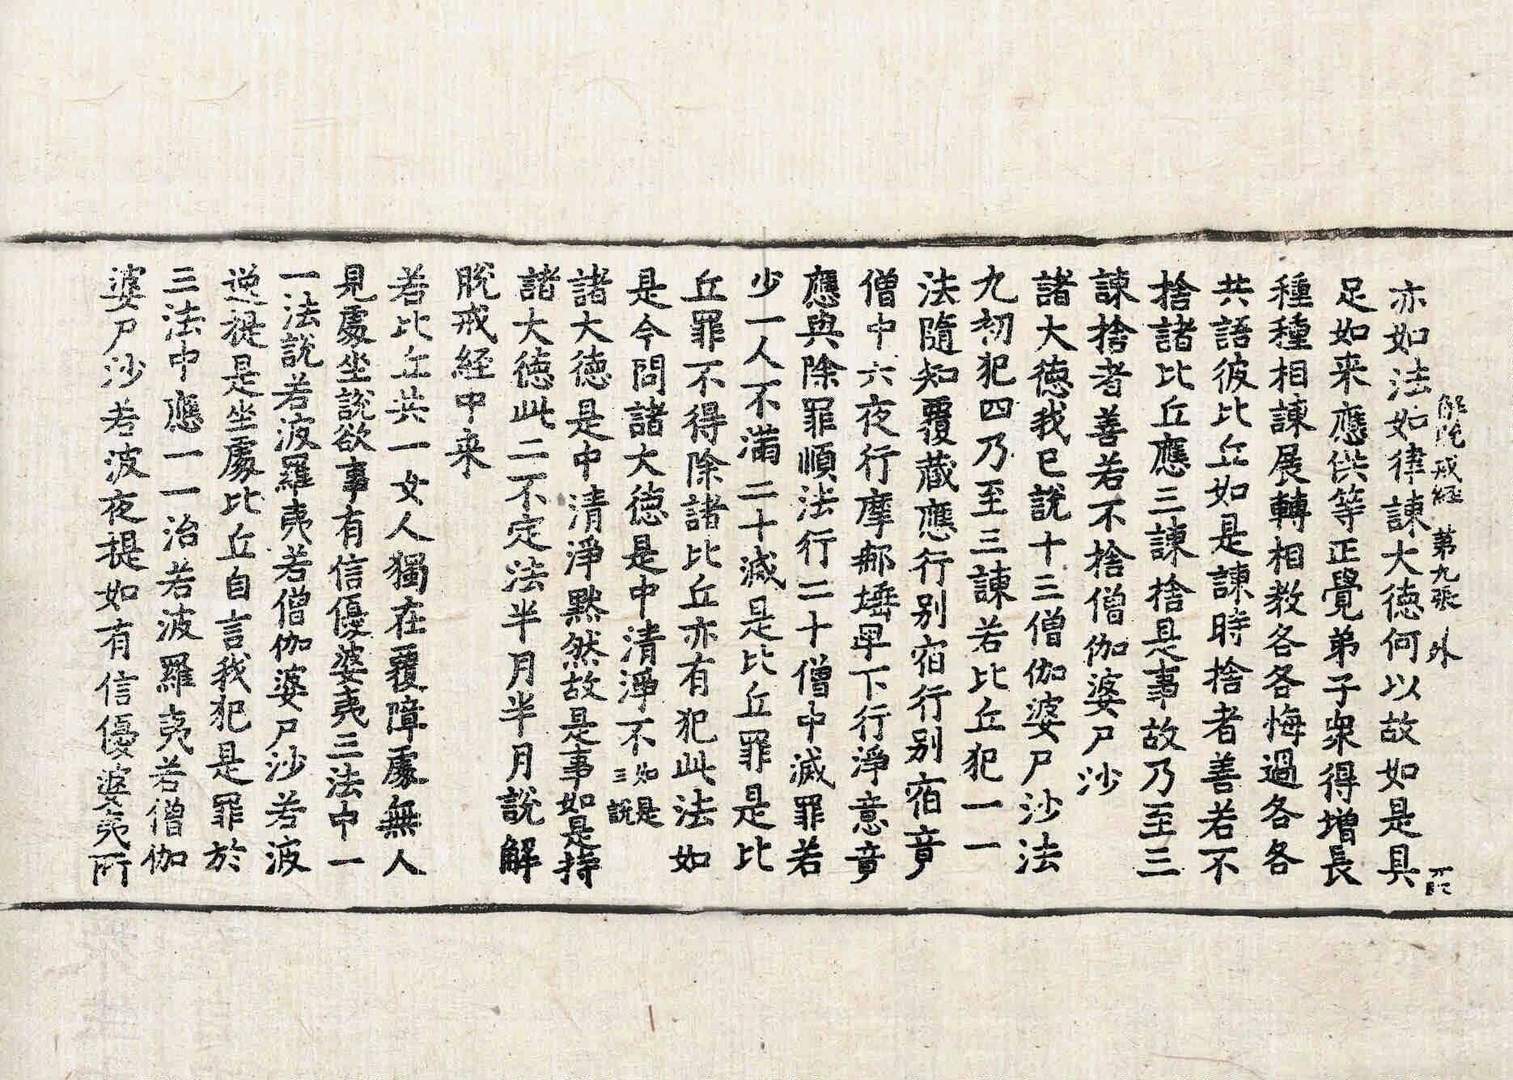 解脫戒經 第九張 外
亦如法如律諫大德何以故如是具
足如来應供等正覺弟子衆得增長
種種相諫展轉相教各各悔過各各
共語彼比丘如是諫時捨者善若不
捨諸比丘應三諫捨是事故乃至三
諫捨者善若不捨僧伽婆尸沙
諸大德我已說十三僧伽婆尸沙法
九初犯四乃至三諫若比丘犯一一
法隨知覆藏應行别宿行别宿竟
僧中六夜行摩那埵早下行淨意竟
應與除罪順法行二十僧中滅罪若
少一人不滿二十滅是比丘罪是比
丘罪不得除諸比丘亦有犯此法如
是今問諸大德是中清淨不如是三說
諸大德是中清淨黙然故是事如是持
諸大德此二不定法半月半月說解
脫戒経中来
若比丘共一女人獨在覆障處無人
見處坐說欲事有信優婆夷三法中一
一法說若波羅夷若僧伽婆尸沙若波
逸提是坐處比丘自言我犯是罪於
三法中應一一治若波羅夷若僧伽
婆尸沙若波夜提如有信優婆夷所